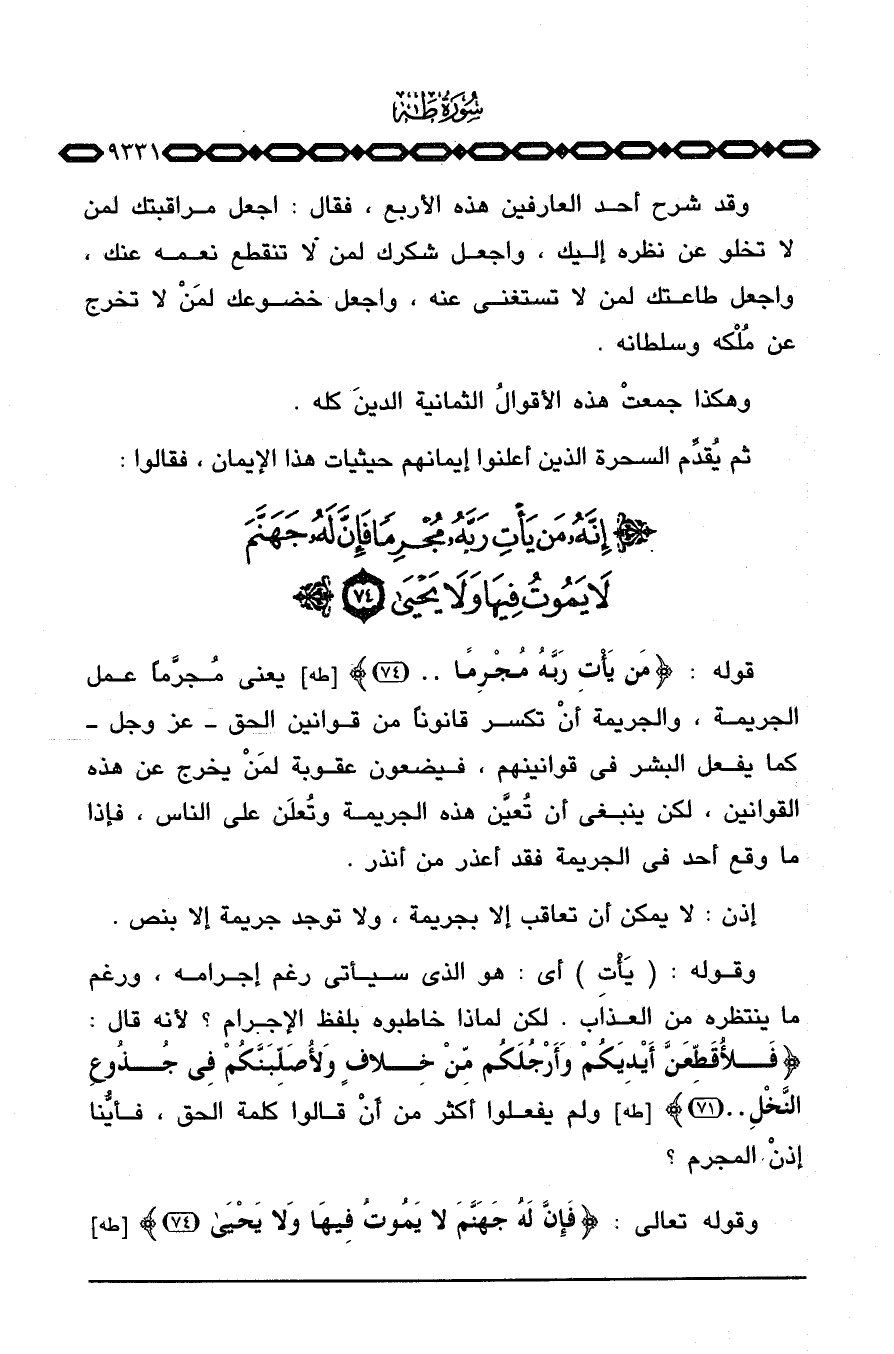 سُورَةُ طٰهٰ
٩٣٣١
وقد شرح أحد العارفين هذه الأربع ، فقال : اجعل مراقبتك لمن
لا تخلو عن نظره إليك ، واجعل شكرك لمن لا تنقطع نعمه عنك ،
واجعل طاعتك لمن لا تستغنى عنه ، واجعل خضوعك لمَنْ لا تخرج
عن مُلْكه وسلطانه .
وهكذا جمعتْ هذه الأقوالُ الثمانية الدينَ كله .
ثم يُقدِّم السحرة الذين أعلنوا إيمانهم حيثيات هذا الإيمان ، فقالوا :
﴿ إِنَّهُۥ مَن يَأْتِ رَبَّهُۥ مُجْرِمًا فَإِنَّ لَهُۥ جَهَنَّمَ
لَا يَمُوتُ فِيهَا وَلَا يَحْيَىٰ (٧٤) ﴾
قوله : ﴿ مَن يَأْتِ رَبَّهُ مُجْرِمًا .. (٧٤) ﴾ [طه] يعنى مُجرَّماً عمل
الجريمة ، والجريمة أنْ تكسر قانوناً من قوانين الحق - عز وجل -
كما يفعل البشر فى قوانينهم ، فيضعون عقوبة لمَنْ يخرج عن هذه
القوانين ، لكن ينبغى أن تُعيَّن هذه الجريمة وتُعلَن على الناس ، فإذا
ما وقع أحد فى الجريمة فقد أعذر من أنذر .
إذن : لا يمكن أن تعاقب إلا بجريمة ، ولا توجد جريمة إلا بنص .
وقوله : ( يَأْتِ ) أى : هو الذى سيأتى رغم إجرامه ، ورغم
ما ينتظره من العذاب . لكن لماذا خاطبوه بلفظ الإجرام ؟ لأنه قال :
﴿ فَلأُقَطِّعَنَّ أَيْدِيَكُمْ وَأَرْجُلَكُم مِّنْ خِلافٍ وَلأُصَلِّبَنَّكُمْ فِى جُذُوعِ
النَّخْلِ .. (٧١) ﴾ [طه] ولم يفعلوا أكثر من أنْ قالوا كلمة الحق ، فأيُّنا
إذنْ المجرم ؟
وقوله تعالى : ﴿ فَإِنَّ لَهُ جَهَنَّمَ لا يَمُوتُ فِيهَا وَلا يَحْيَىٰ (٧٤) ﴾ [طه]